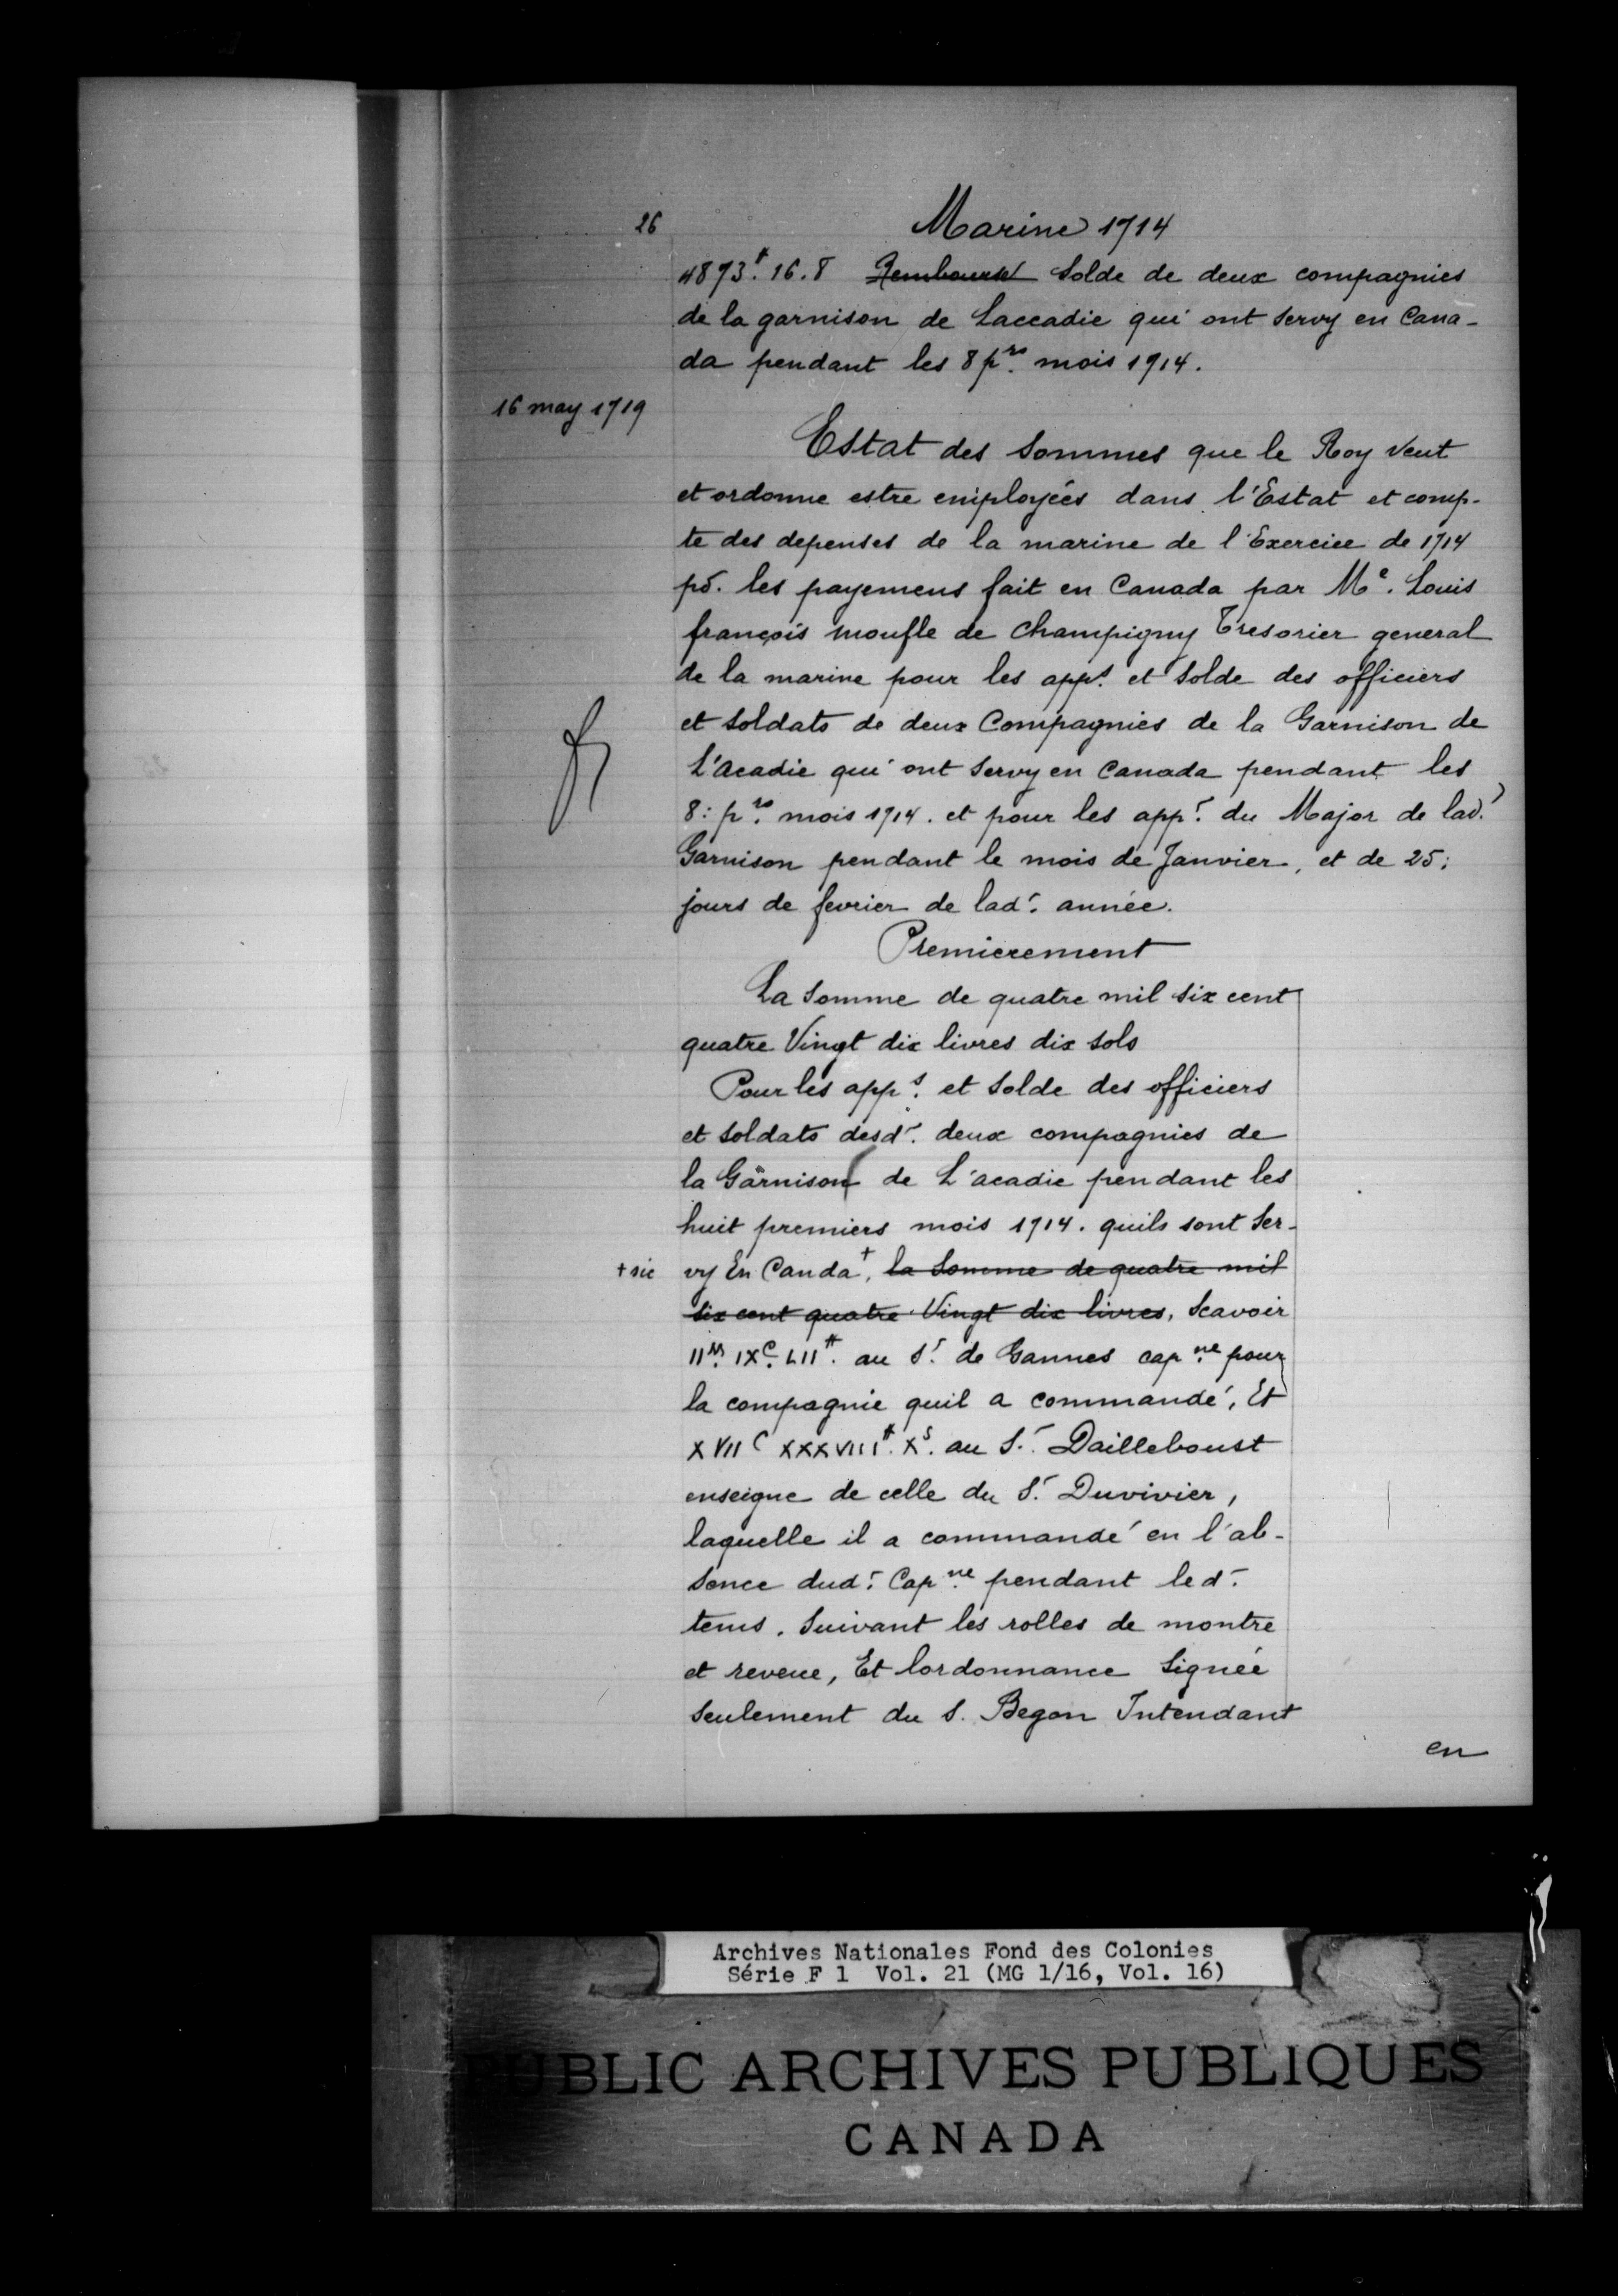 26
Marine 1714
4873#. 16. 8 Rembourset Solde de deux compagnies
de la garnison de Laccadie qui ont servy en Cana-
da pendant les 8 prs. mois 1714.
16 may 1719
Estat des sommes que le Roy veut
et ordonne estre employées dans l'Estat et comp-
te des depenses de la marine de l'Exercice de 1714
po. les payemens fait en Canada par Me. Louis
françois moufle de Champigny Tresorier general
de la marine pour les apps. et solde des officiers
et soldats de deux Compagnies de la Garnison de
L'acadie qui ont servy en Canada pendant les
8: prs. mois 1714. et pour les app. du Major de lad.
Garnison pendant le mois de Janvier, et de 25:
jours de fevrier de lad. année.
Premierement
La Somme de quatre mil six cent
quatre Vingt dix livres dix sols
Pour les apps. et solde des officiers
et soldats desd. deux compagnies de
la Garnison de L'acadie pendant les
huit premiers mois 1714. quils sont ser-
+ sic vy En Canda+, la Somme de quatre mil
six cent quatre Vingt dix livres, Scavoir
IIM. IXC. LII#. au Sr. de Gannes capne. pour
la compagnie quil a commandé, Et
XVIIC XXXVIII#. Xs. au Sr. Dailleboust
enseigne de celle du Sr. Duvivier,
laquelle il a commandé en l'ab-
sence dud. Capne. pendant led.
tems. Suivant les rolles de montre
et reveue, Et lordonnance signée
seulement du S. Begon Intendant
en
Archives Nationales Fond des Colonies
Série F 1 Vol. 21 (MG 1/16, Vol. 16)
PUBLIC ARCHIVES PUBLIQUES
CANADA